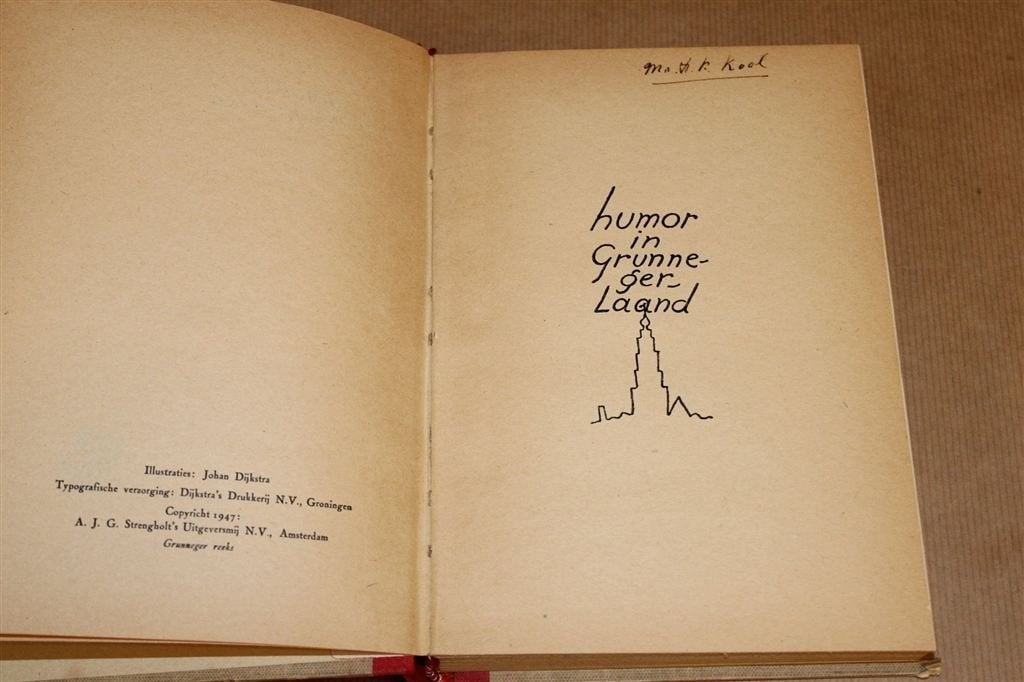 Illustraties: Johan Dijkstra
Typografische verzorging: Dijkstra's Drukkerij N.V., Groningen
Copyright 1947:
A. J. G. Strengholt's Uitgeversmij N.V., Amsterdam
Grunneger reeks
Kool
humor
in
Grunne-
ger-
Laand